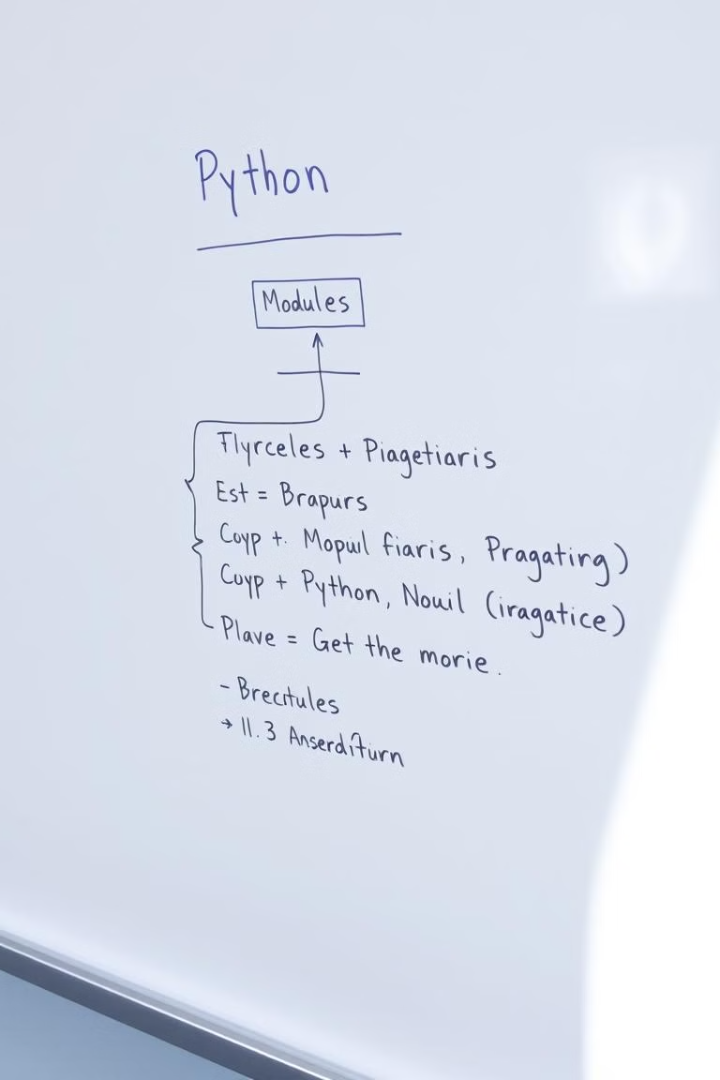 Python
Modules
Flyrceles + Piagetiaris
Est = Brapurs
Coyp +. Mopwl fiaris, Pragating)
Cuyp + Python, Nouil (iragatice)
Plave = Get the morie.
- Brecitules
→ 11.3 Anserdifurn